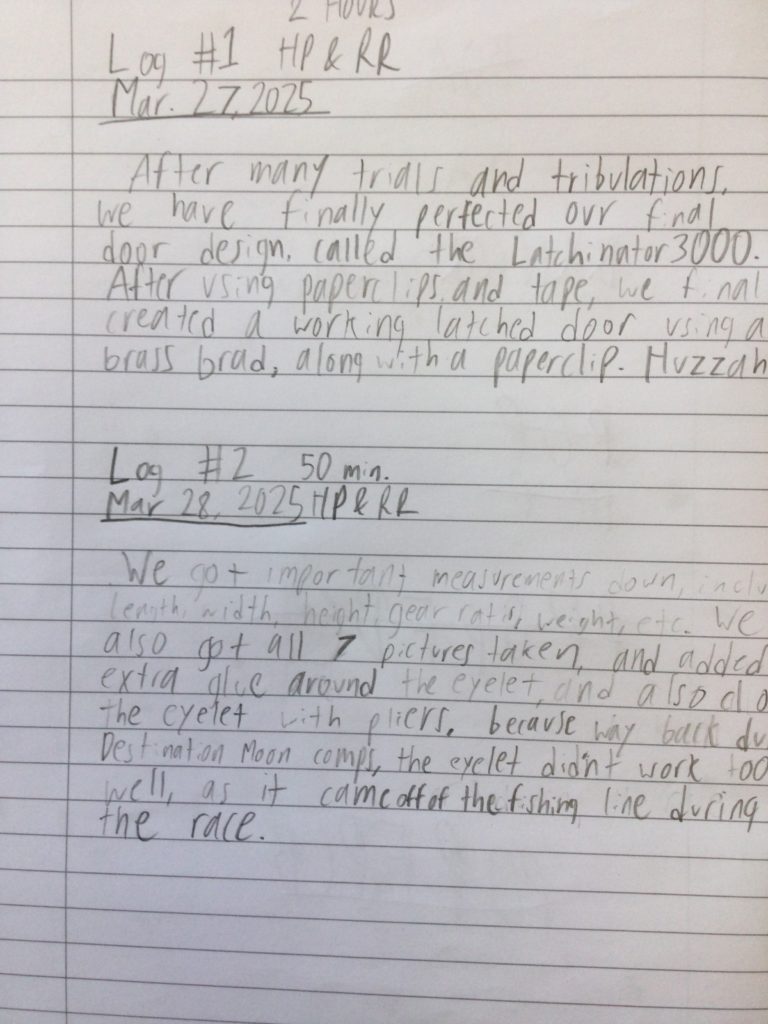 2 HOURS
Log #1 HP & RR
Mar. 27, 2025
After many trials and tribulations,
we have finally perfected our final
door design, called the Latchinator 3000.
After using paperclips and tape, we final
created a working latched door using a
brass brad, along with a paperclip. Huzzah
Log #2 50 min.
Mar 28, 2025 HP & RR
We got important measurements down, inclu
length, width, height, gear ratio, weight, etc. We
also got all 7 pictures taken, and added
extra glue around the eyelet, and also clo
the eyelet with pliers, because way back du
Destination Moon comps, the eyelet didn't work too
well, as it came off of the fishing line during
the race.